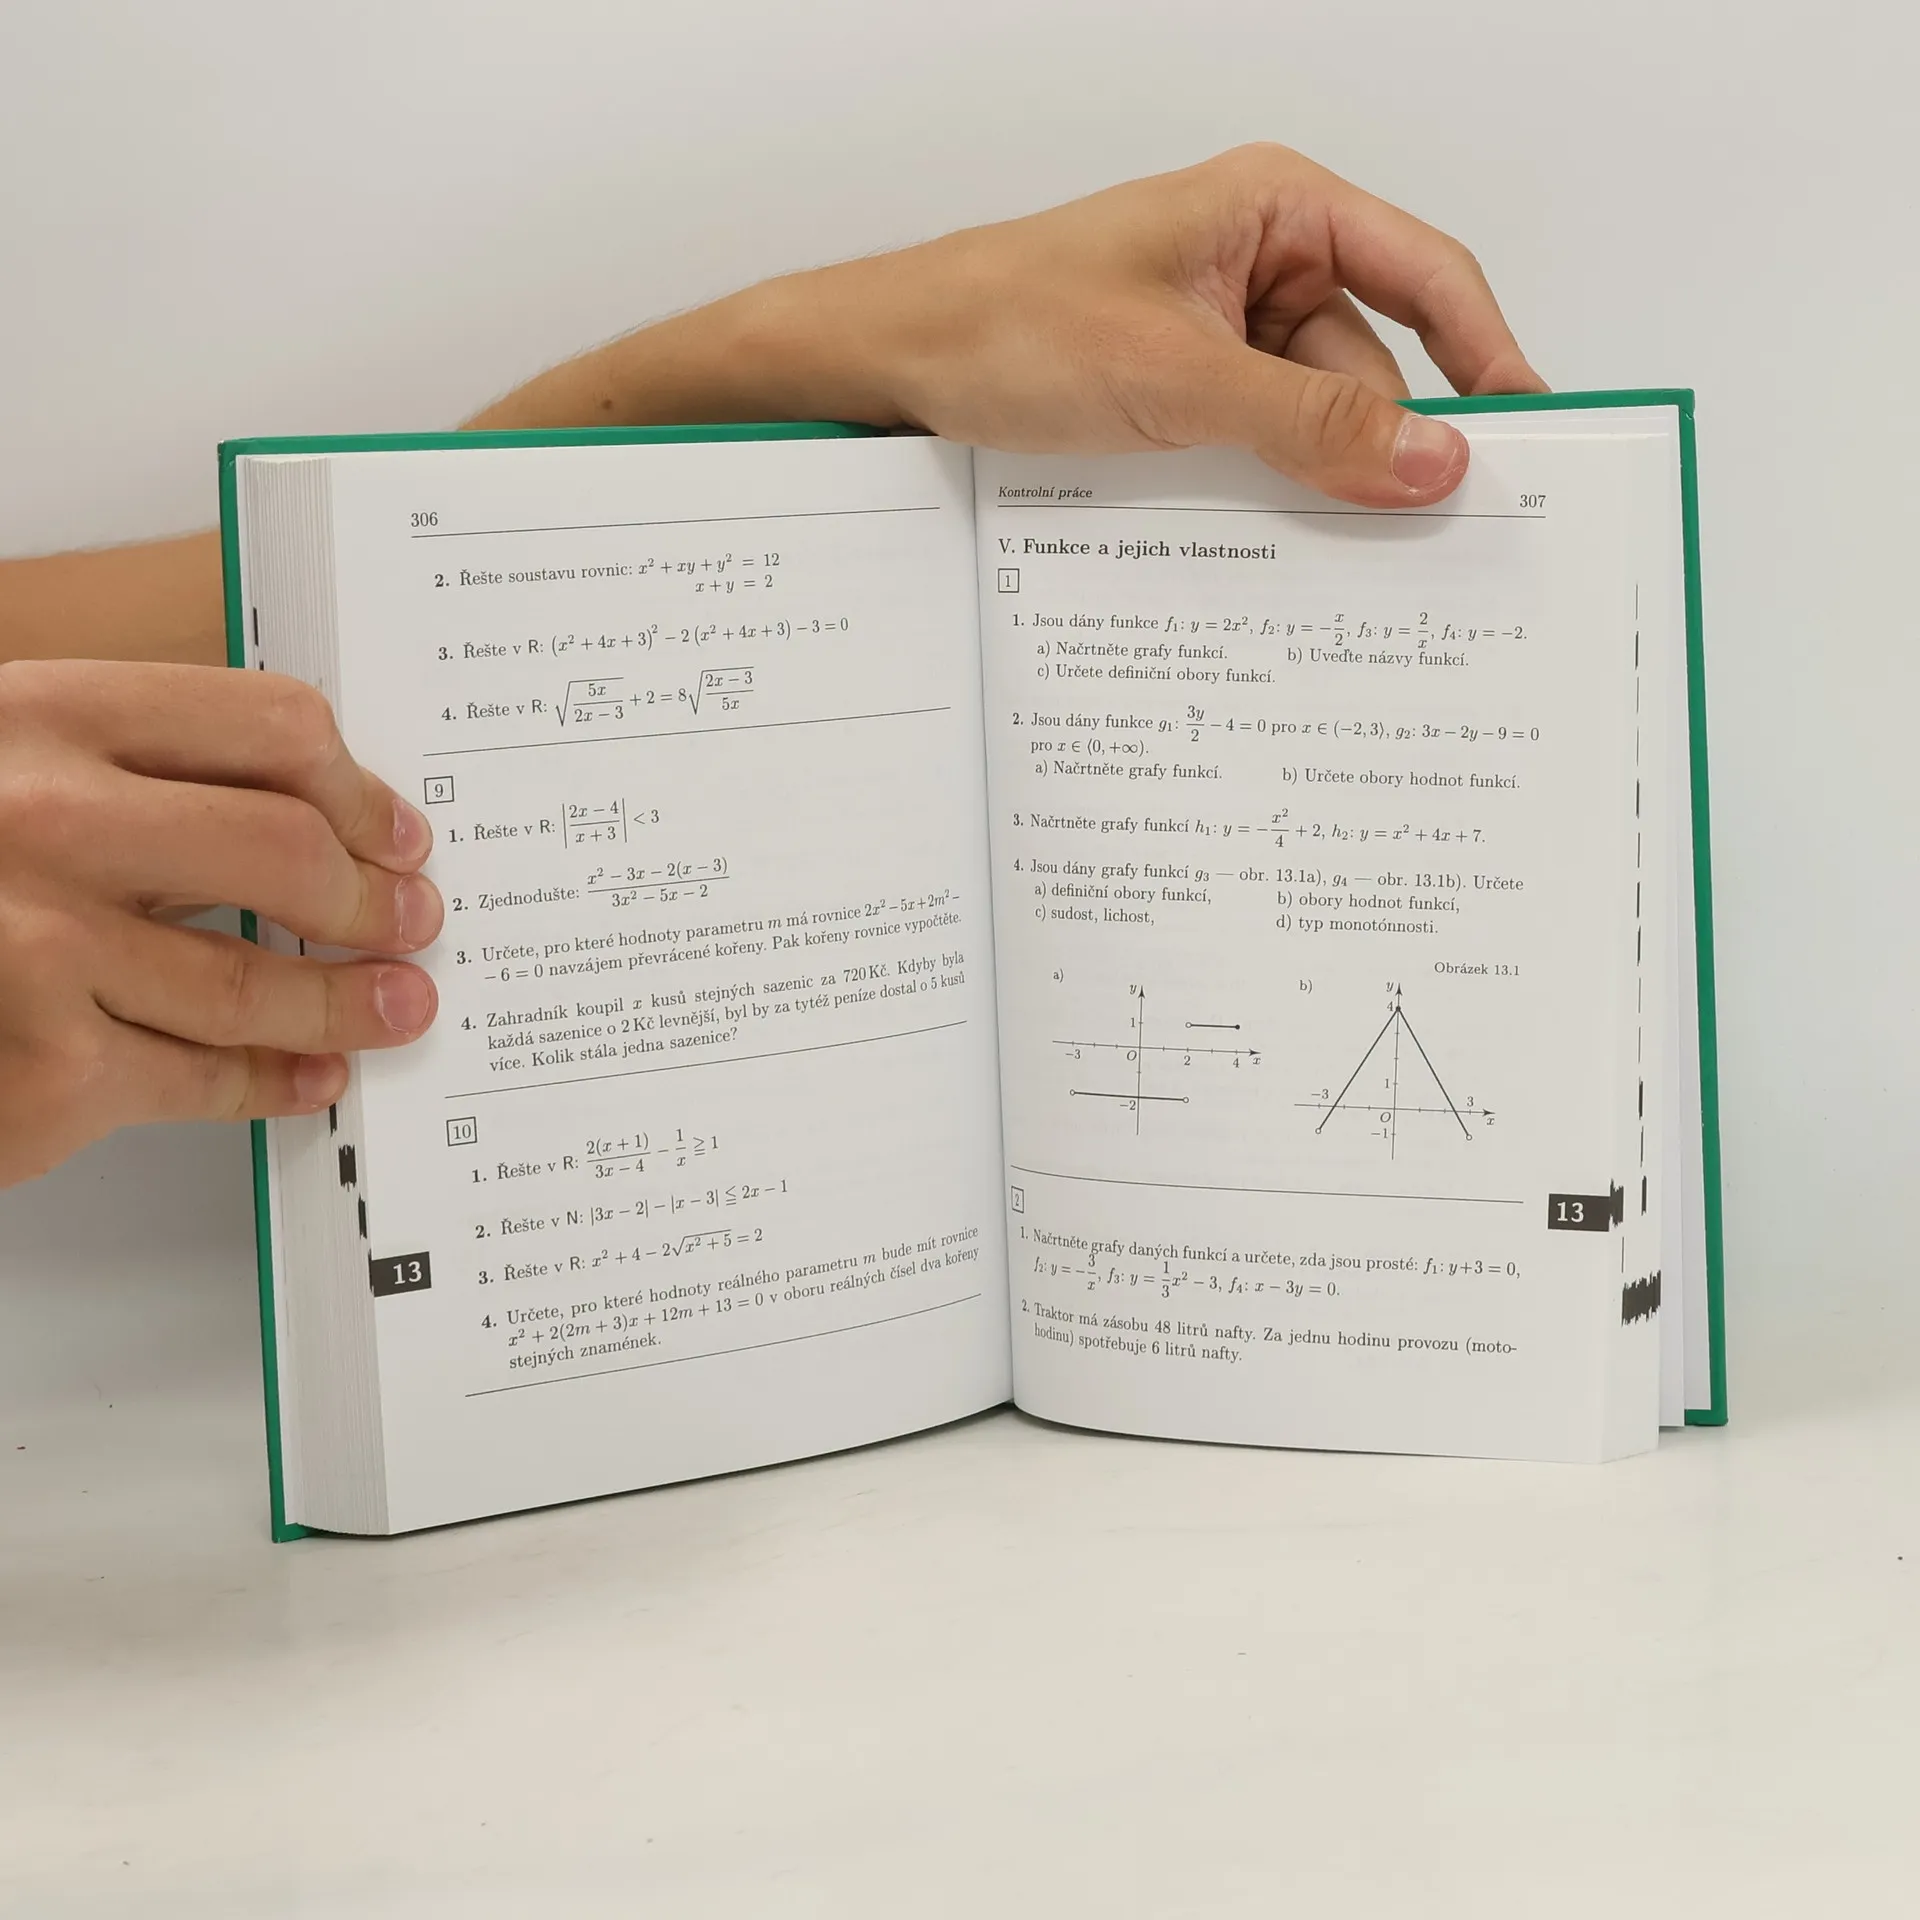 306
2. Řešte soustavu rovnic: x² + xy + y² = 12
x + y = 2
3. Řešte v R: (x² + 4x + 3)² − 2 (x² + 4x + 3) − 3 = 0
4. Řešte v R: √(5x/(2x − 3)) + 2 = 8√((2x − 3)/(5x))
9
1. Řešte v R: |(2x − 4)/(x + 3)| < 3
2. Zjednodušte: (x² − 3x − 2(x − 3))/(3x² − 5x − 2)
3. Určete, pro které hodnoty parametru m má rovnice 2x² − 5x + 2m² −
− 6 = 0 navzájem převrácené kořeny. Pak kořeny rovnice vypočtěte.
4. Zahradník koupil x kusů stejných sazenic za 720 Kč. Kdyby byla
každá sazenice o 2 Kč levnější, byl by za tytéž peníze dostal o 5 kusů
více. Kolik stála jedna sazenice?
10
1. Řešte v R: 2(x + 1)/(3x − 4) − 1/x ≧ 1
2. Řešte v N: |3x − 2| − |x − 3| ≦ 2x − 1
3. Řešte v R: x² + 4 − 2√(x² + 5) = 2
4. Určete, pro které hodnoty reálného parametru m bude mít rovnice
x² + 2(2m + 3)x + 12m + 13 = 0 v oboru reálných čísel dva kořeny
stejných znamének.
13
Kontrolní práce 307
V. Funkce a jejich vlastnosti
1
1. Jsou dány funkce f₁: y = 2x², f₂: y = −x/2, f₃: y = 2/x, f₄: y = −2.
a) Načrtněte grafy funkcí. b) Uveďte názvy funkcí.
c) Určete definiční obory funkcí.
2. Jsou dány funkce g₁: 3y/2 − 4 = 0 pro x ∈ (−2, 3⟩, g₂: 3x − 2y − 9 = 0
pro x ∈ ⟨0, +∞).
a) Načrtněte grafy funkcí. b) Určete obory hodnot funkcí.
3. Načrtněte grafy funkcí h₁: y = −x²/4 + 2, h₂: y = x² + 4x + 7.
4. Jsou dány grafy funkcí g₃ — obr. 13.1a), g₄ — obr. 13.1b). Určete
a) definiční obory funkcí, b) obory hodnot funkcí,
c) sudost, lichost, d) typ monotónnosti.
Obrázek 13.1
a) y
1
−3 O 2 4 x
−2
b) y
4
1
−3 O 3 x
−1
2
1. Načrtněte grafy daných funkcí a určete, zda jsou prosté: f₁: y + 3 = 0,
f₂: y = −3/x, f₃: y = 1/3 x² − 3, f₄: x − 3y = 0.
2. Traktor má zásobu 48 litrů nafty. Za jednu hodinu provozu (moto-
hodinu) spotřebuje 6 litrů nafty.
13